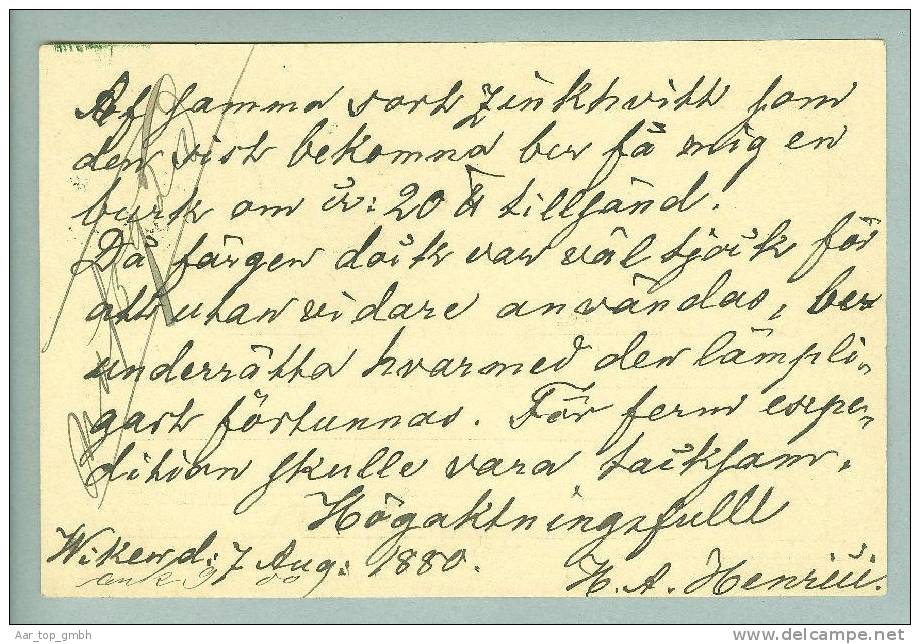 Af samma sort Zinkhvitt som
den sist bekomna ber få mig en
burk om cir: 20 ℔ tillsänd.
Då färgen dock var väl tjock för
att utan vidare användas, ber
underrätta hvarmed den lämpli-
gast förtunnas. För ferm expe-
dition skulle vara tacksam.
Högaktningsfullt
Wiken d: 7 Aug: 1880.
H. A. Henrici.
Aar_top_gmbh
www.delcampe.net